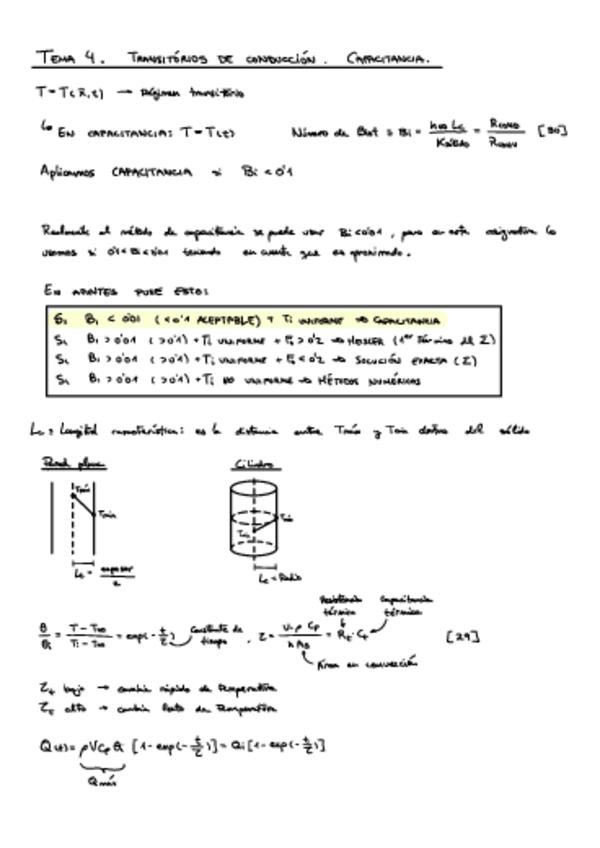 TEMA 4. TRANSITÓRIOS DE CONDUCCIÓN. CAPACITANCIA.
T = T(R,t) → Régimen transitório
↳ EN CAPACITANCIA: T = T(t) Número de Biot ≡ Bi = h∞ Lc / Ksólido = Rcond / Rconv [30]
Aplicamos CAPACITANCIA si Bi < 0'1
Realmente el método de capacitancia se puede usar Bi < 0'01, pero en esta asignatura lo
usamos si 0'1 < Bi < 0'01 teniendo en cuenta que es aproximado.
EN APUNTES PUSE ESTO:
Si Bi < 0'01 (< 0'1 ACEPTABLE) + Ti UNIFORME → CAPACITANCIA
Si Bi > 0'01 (> 0'1) + Ti UNIFORME + Fo > 0'2 → HEISLER (1er Término del Σ)
Si Bi > 0'01 (> 0'1) + Ti UNIFORME + Fo < 0'2 → SOLUCIÓN EXACTA (Σ)
Si Bi > 0'01 (> 0'1) + Ti NO UNIFORME → MÉTODOS NUMÉRICOS
Lc ≡ Longitud característica: es la distancia entre Tmáx y Tmin dentro del sólido
Pared plana Cilindro
Tmáx
Tmin Tmin
Lc = espesor / 2 Lc = Radio
Resistencia térmica Capacitancia térmica
θ/θi = T - T∞ / Ti - T∞ = exp(- t/τ) Constante de tiempo, τ = V·ρ Cp / h As = Rt · Ct [29]
Área en convección
τt bajo → cambia rápido de temperatura
τt alto → cambia lento de temperatura
Q(t) = ρVCp θi [1 - exp(- t/τ)] = Qi [1 - exp(- t/τ)]
Qmáx